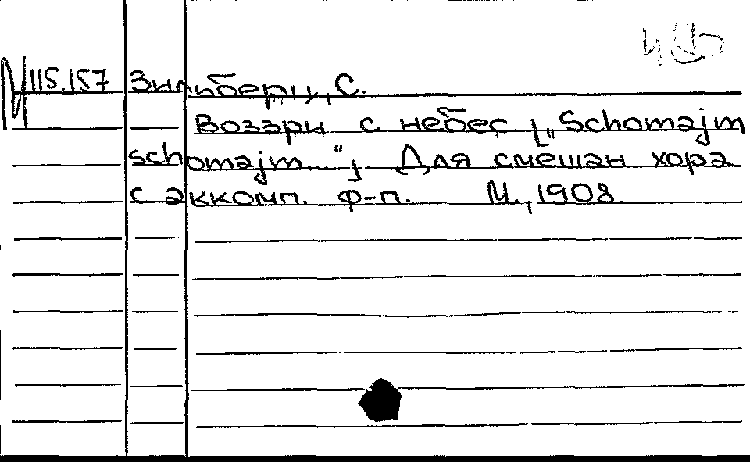 М 115.157 Зильберц, С.
Воззри с небес [„Schomajm
schomajm..."] Для смешан хора
с аккомп. ф-п. М., 1908